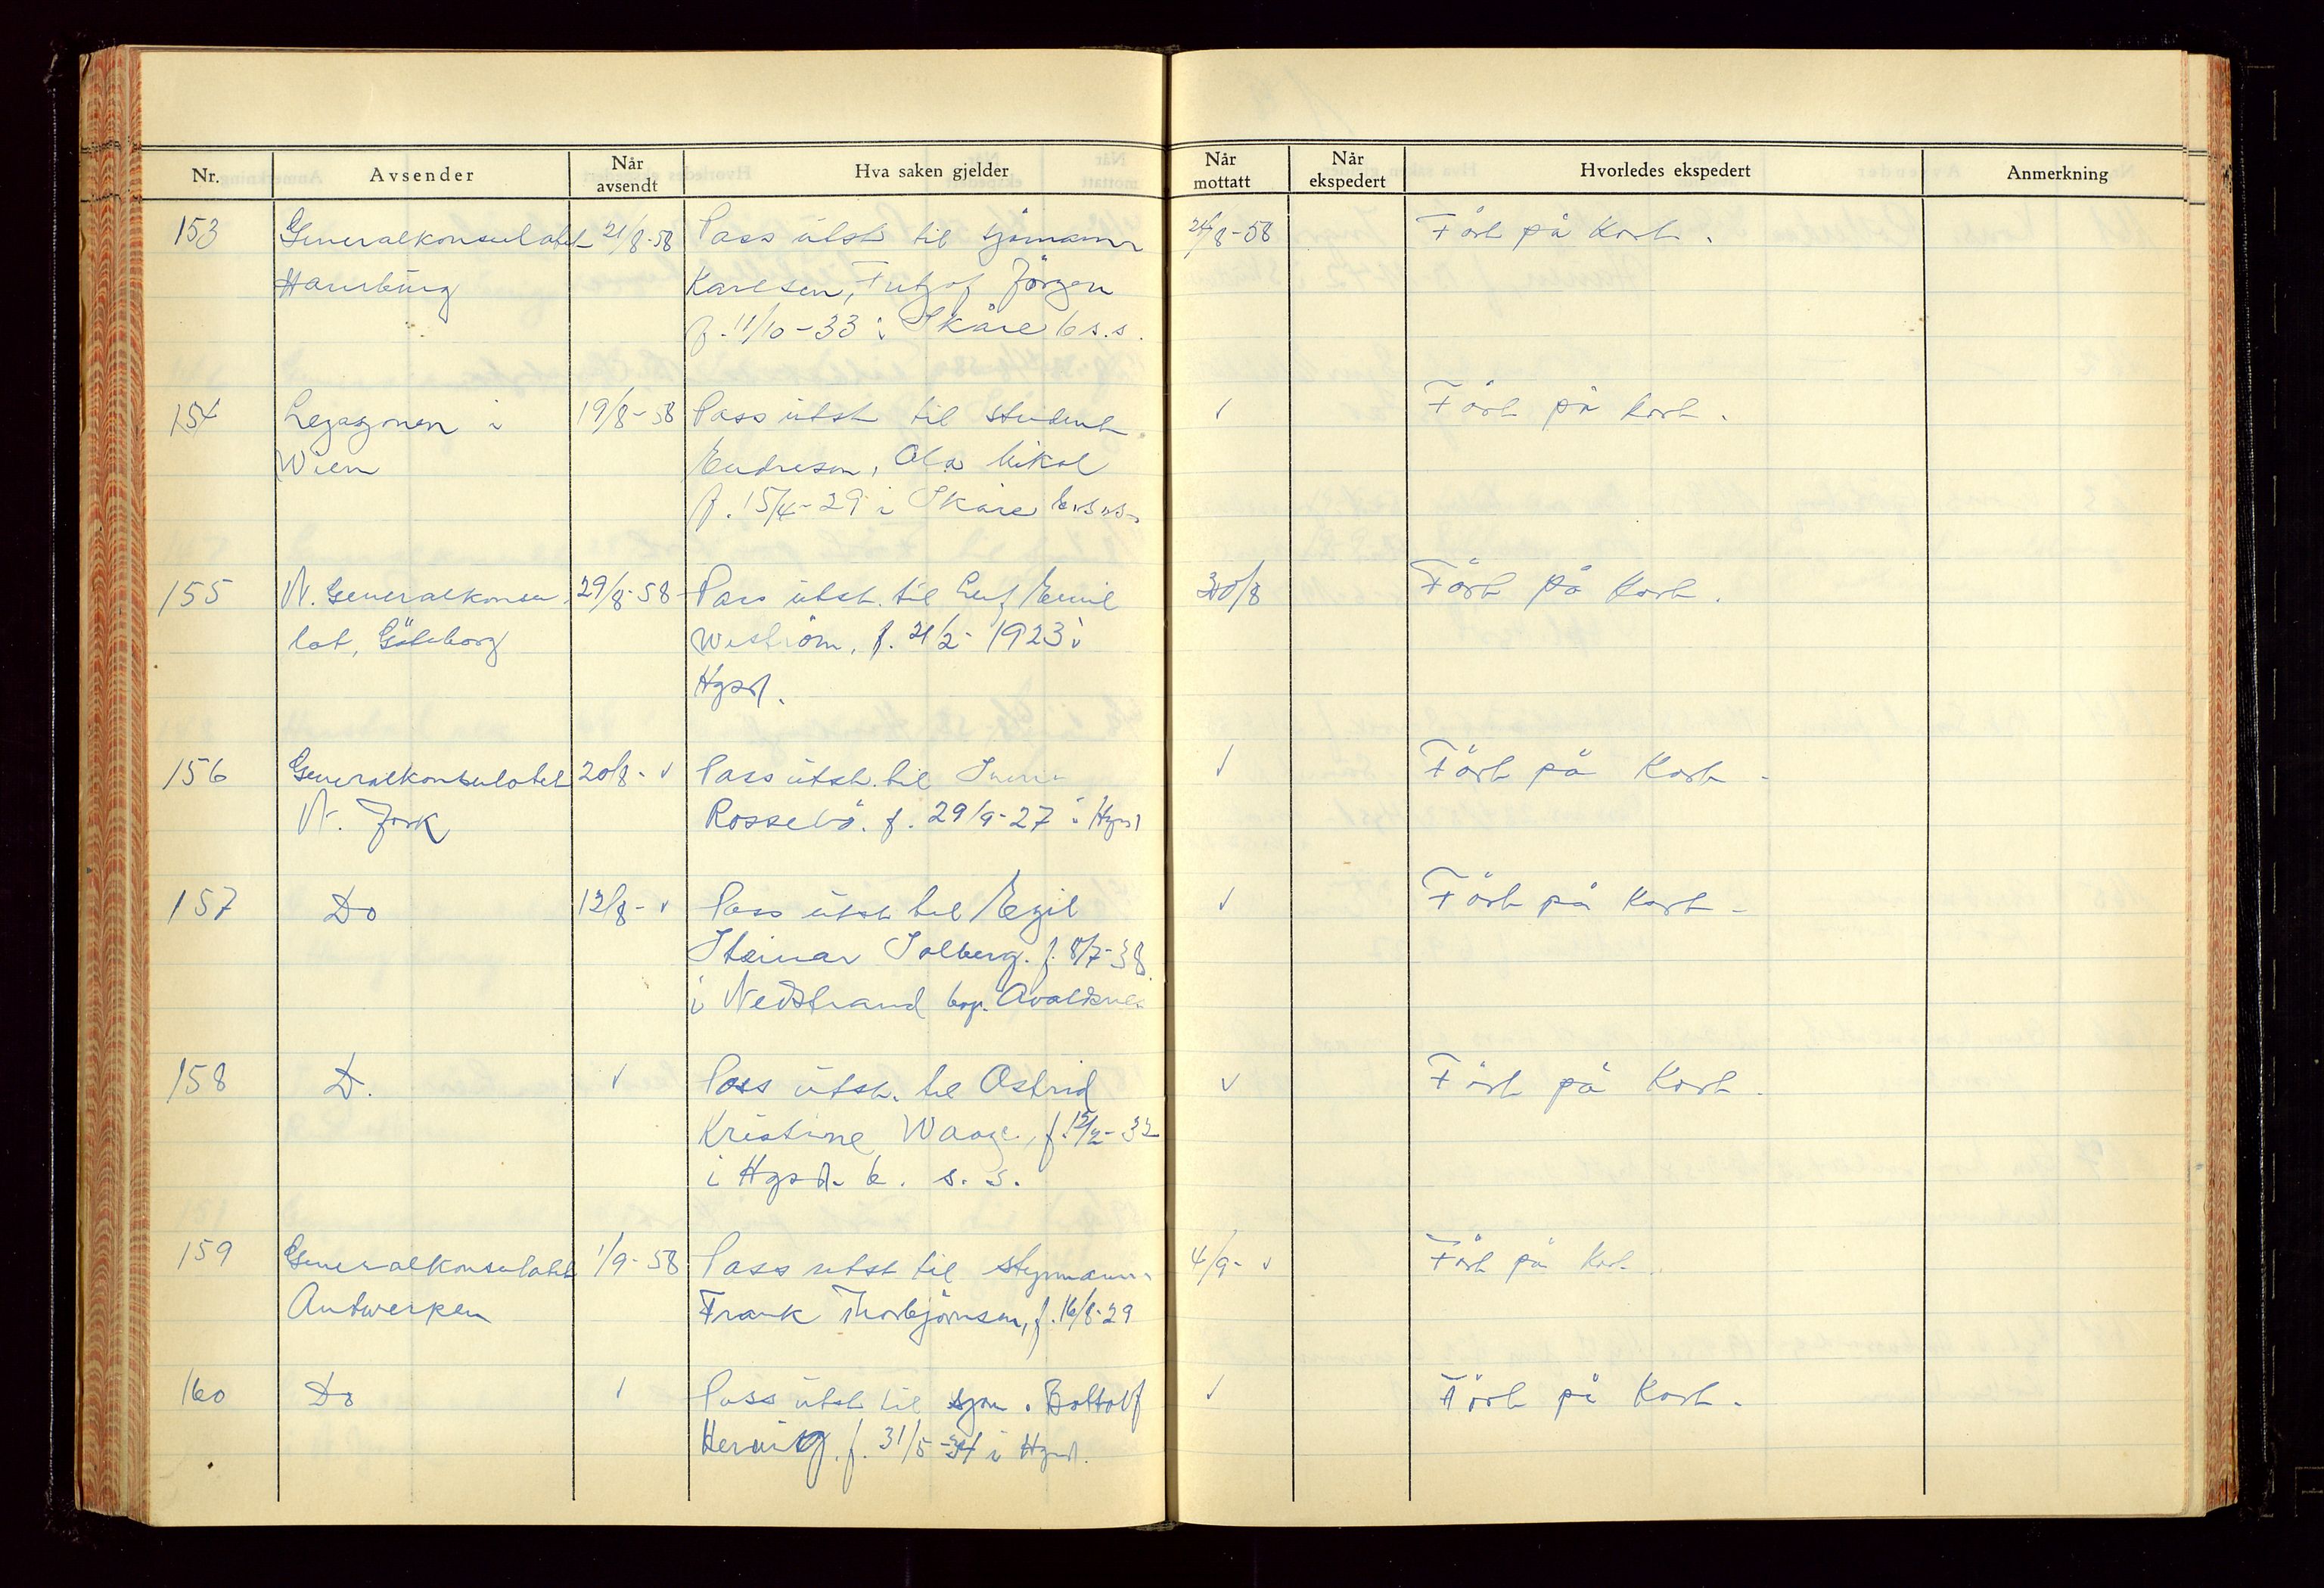 Nr. Avsender Når avsendt Hva saken gjelder Når mottatt Når ekspedert Hvorledes ekspedert Anmerkning
153 Generalkonsulatet 21/8-58 Pass utst. til sjömann 24/8-58 Fört på Kort.
Hamburg Karlsen, Fritjof Jörgen
f. 11/10-33 i Skåre b s.s.
154 Legasjonen i 19/8-58 Pass utst til student √ Fört på kort.
Wien Endresen, Ola Mikal
f. 15/4-29 i Skåre b.s.s.
155 N. Generalkonsu 29/8-58 Pass utst. til Leif Emil 30/8 Fört på Kort.
lat, Göteborg Weström, f. 21/2-1923 i
Hgsd.
156 Generalkonsulatet 20/8- √ Pass utst. til √ Fört på Kort -
N. Jork Rossebö. f. 29/9-27 i Hgsd
157 Do 12/8- √ Pass utst til Egil √ Fört på Kort -
Steinar Solberg. f. 8/7-38
i Nedstrand bop. Avaldsnes
158 D. √ Pass utst. til Astrid √ Fört på Kort.
Kristine Waage, f. 15/2-32
i Hgsd. b. s. s.
159 Generalkonsulatet 1/9-58 Pass utst til styrmann 4/9- √ Fört på Kort.
Antwerpen Frank Thorbjörnsen, f. 16/8-29
160 Do √ Pass utst til sjm. Bottolf √ Fört på Kort.
f. 31/5-34 i Hgsd.